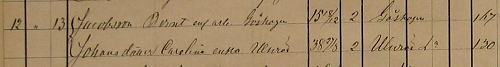 12 " 13 Jacobsson Bernt enf arb Göskogen 15 18/12 2 Göskogen 167
Johansdotter Carolina enka Ulvröd 38 2 Ulvröd d:o 130